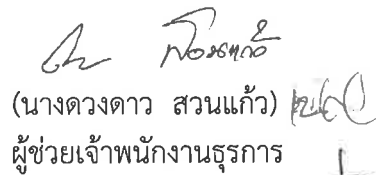 (นางดวงดาว สวนแก้ว)
ผู้ช่วยเจ้าพนักงานธุรการ